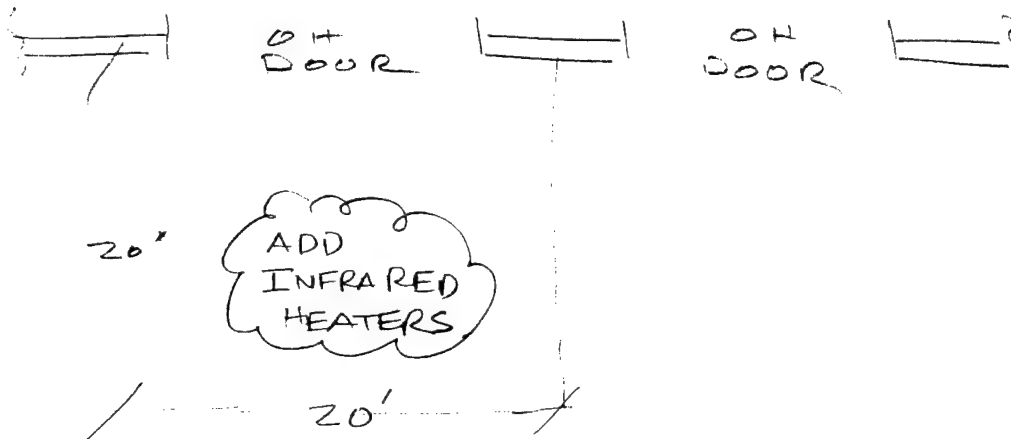 OH
DOOR
OH
DOOR
20'
ADD
INFRARED
HEATERS
20'